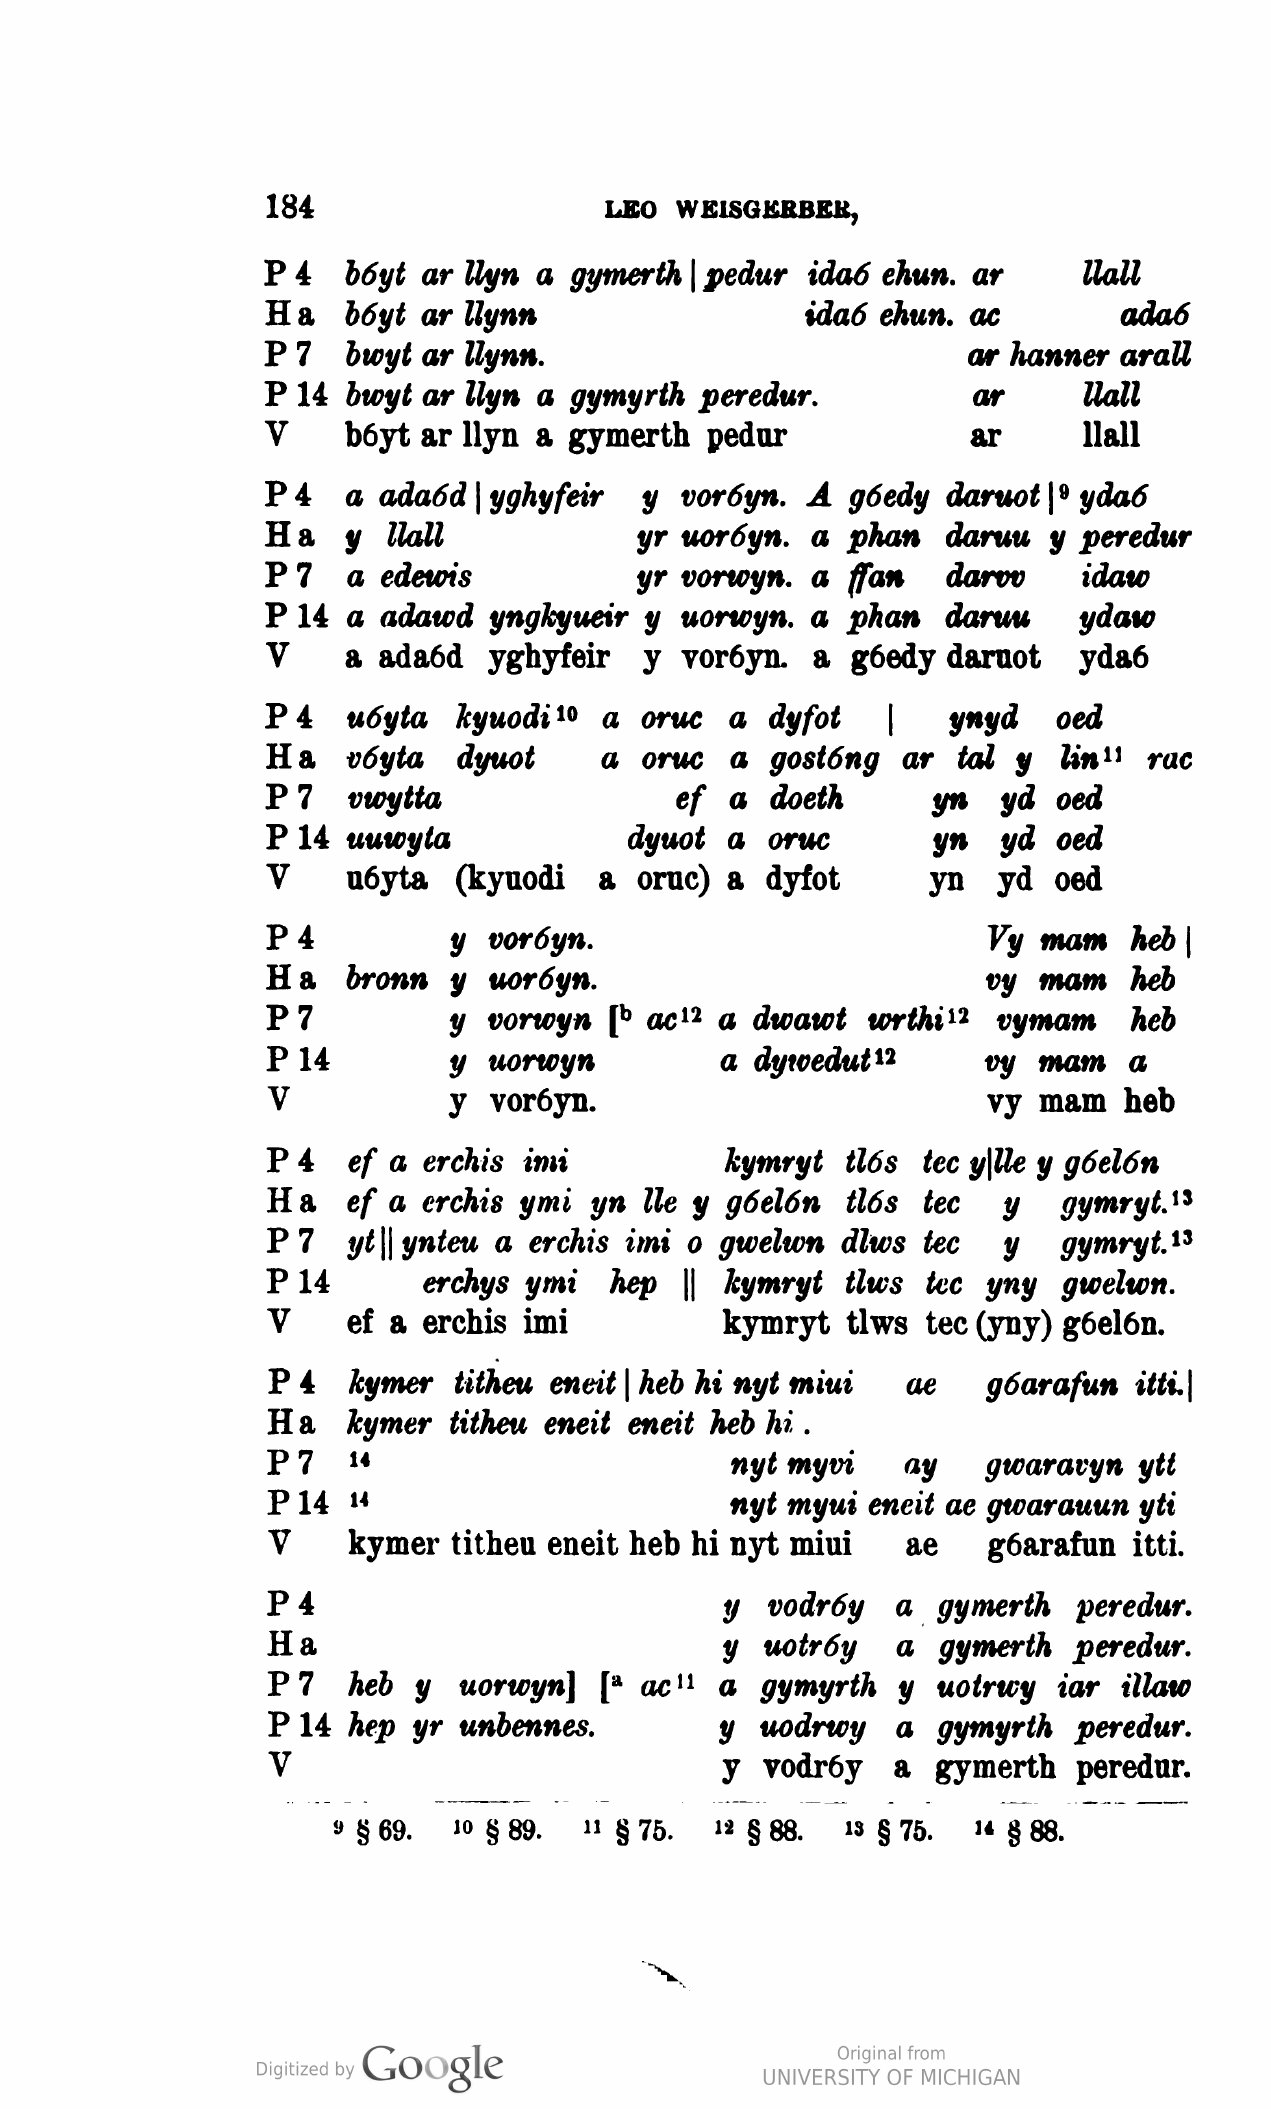 184 LEO WEISGERBER,
P 4 b6yt ar llyn a gymerth | pedur ida6 ehun. ar llall
H a b6yt ar llynn ida6 ehun. ac ada6
P 7 bwyt ar llynn. ar hanner arall
P 14 bwyt ar llyn a gymyrth peredur. ar llall
V b6yt ar llyn a gymerth pedur ar llall
P 4 a ada6d | yghyfeir y vor6yn. A g6edy daruot |⁹ yda6
H a y llall yr uor6yn. a phan daruu y peredur
P 7 a edewis yr vorwyn. a ffan darvv idaw
P 14 a adawd yngkyueir y uorwyn. a phan daruu ydaw
V a ada6d yghyfeir y vor6yn. a g6edy daruot yda6
P 4 u6yta kyuodi¹⁰ a oruc a dyfot | ynyd oed
H a v6yta dyuot a oruc a gost6ng ar tal y lin¹¹ rac
P 7 vwytta ef a doeth yn yd oed
P 14 uuwyta dyuot a oruc yn yd oed
V u6yta (kyuodi a oruc) a dyfot yn yd oed
P 4 y vor6yn. Vy mam heb |
H a bronn y uor6yn. vy mam heb
P 7 y vorwyn [ᵇ ac¹² a dwawt wrthi¹² vymam heb
P 14 y uorwyn a dywedut¹² vy mam a
V y vor6yn. vy mam heb
P 4 ef a erchis imi kymryt tl6s tec y|lle y g6el6n
H a ef a erchis ymi yn lle y g6el6n tl6s tec y gymryt.¹³
P 7 yt || ynteu a erchis imi o gwelwn dlws tec y gymryt.¹³
P 14 erchys ymi hep || kymryt tlws tec yny gwelwn.
V ef a erchis imi kymryt tlws tec (yny) g6el6n.
P 4 kymer titheu eneit | heb hi nyt miui ae g6arafun itti.|
H a kymer titheu eneit eneit heb hi.
P 7 ¹⁴ nyt myvi ay gwaravyn ytt
P 14 ¹⁴ nyt myui eneit ae gwarauun yti
V kymer titheu eneit heb hi nyt miui ae g6arafun itti.
P 4 y vodr6y a gymerth peredur.
H a y uotr6y a gymerth peredur.
P 7 heb y uorwyn] [ᵃ ac¹¹ a gymyrth y uotrwy iar illaw
P 14 hep yr unbennes. y uodrwy a gymyrth peredur.
V y vodr6y a gymerth peredur.
⁹ § 69. ¹⁰ § 89. ¹¹ § 75. ¹² § 88. ¹³ § 75. ¹⁴ § 88.
Digitized by Google
Original from
UNIVERSITY OF MICHIGAN